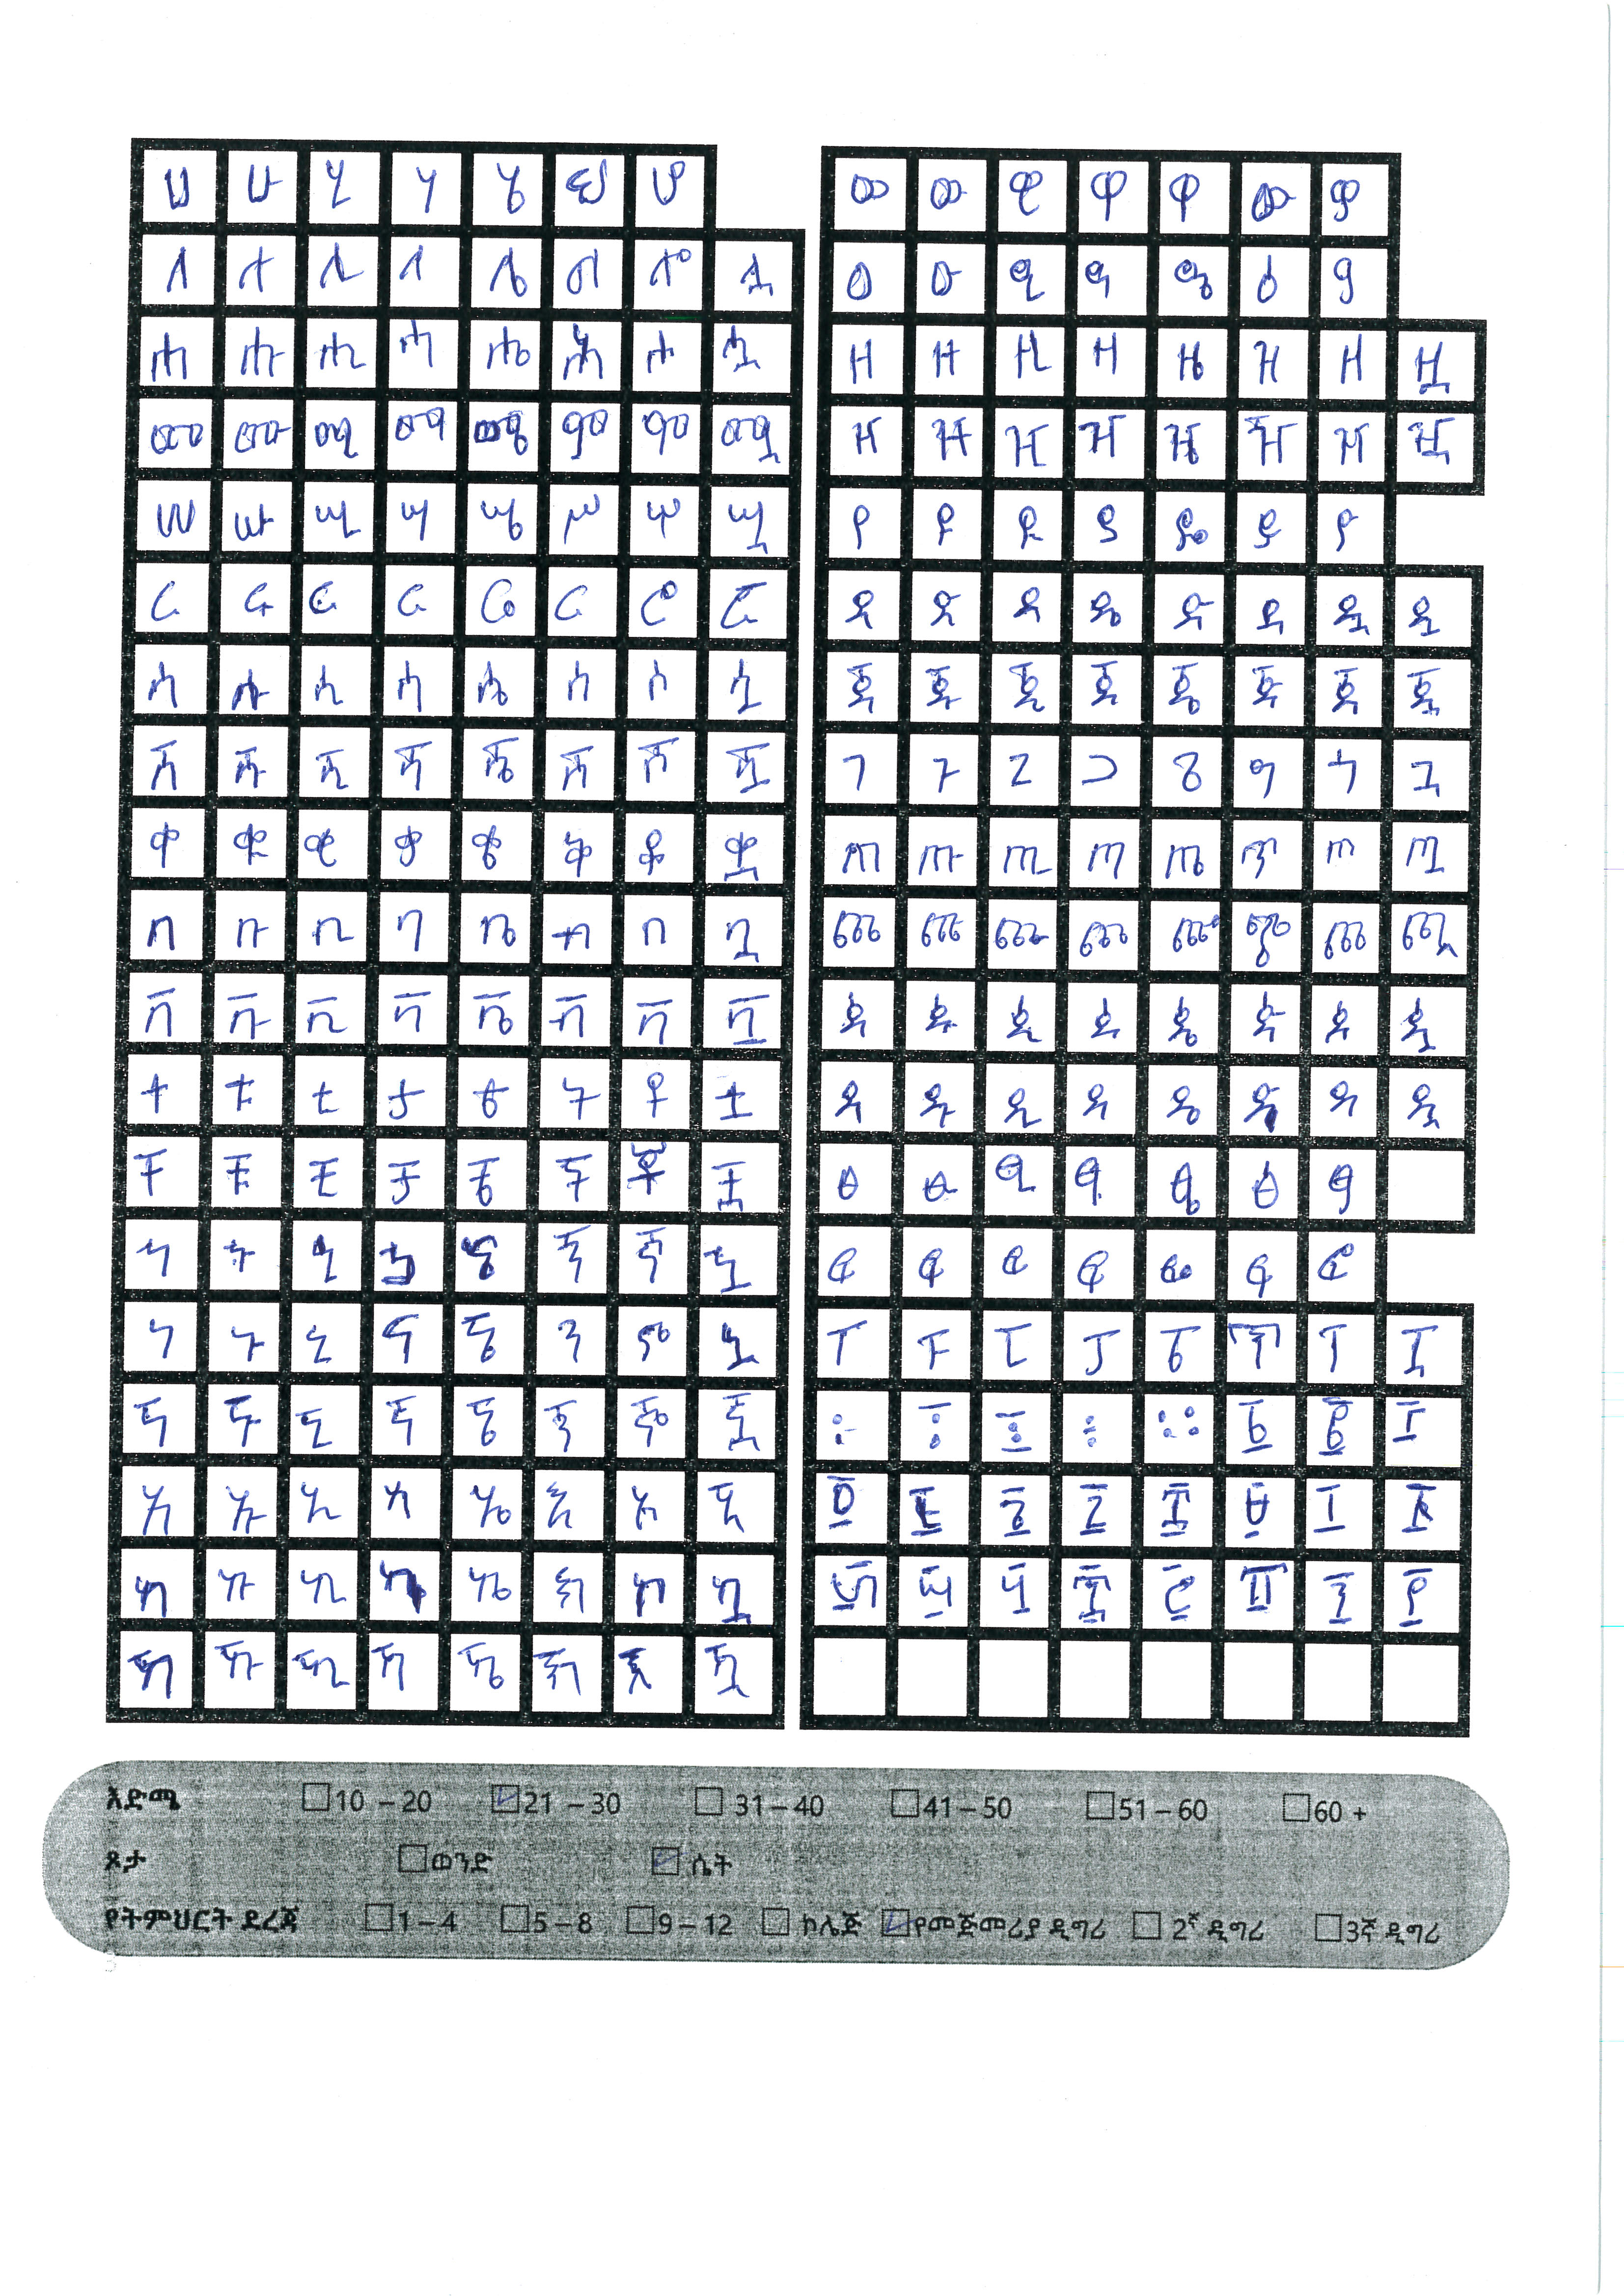 ሀ ሁ ሂ ሃ ሄ ህ ሆ
ለ ሉ ሊ ላ ሌ ል ሎ ሏ
ሐ ሑ ሒ ሓ ሔ ሕ ሖ ሗ
መ ሙ ሚ ማ ሜ ም ሞ ሟ
ሠ ሡ ሢ ሣ ሤ ሥ ሦ ሧ
ረ ሩ ሪ ራ ሬ ር ሮ ሯ
ሰ ሱ ሲ ሳ ሴ ስ ሶ ሷ
ሸ ሹ ሺ ሻ ሼ ሽ ሾ ሿ
ቀ ቁ ቂ ቃ ቄ ቅ ቆ ቋ
በ ቡ ቢ ባ ቤ ብ ቦ ቧ
ቨ ቩ ቪ ቫ ቬ ቭ ቮ ቯ
ተ ቱ ቲ ታ ቴ ት ቶ ቷ
ቸ ቹ ቺ ቻ ቼ ች ቾ ቿ
ነ ኑ ኒ ና ኔ
ኘ ኙ ኚ ኛ ኜ ኝ ኞ ኟ
አ ኡ ኢ ኣ ኤ እ ኦ ኧ
ከ ኩ ኪ ካ ኬ ክ ኮ ኳ
ኸ ኹ ኺ ኻ ኼ ኽ ኾ ዃ
ወ ዉ ዊ ዋ ዌ ው ዎ
ዐ ዑ ዒ ዓ ዔ ዕ ዖ
ዘ ዙ ዚ ዛ ዜ ዝ ዞ ዟ
ዠ ዡ ዢ ዣ ዤ ዥ ዦ ዧ
የ ዩ ዪ ያ ዬ ይ ዮ
ጀ ጁ ጂ ጃ ጄ ጅ ጆ ጇ
ገ ጉ ጊ ጋ ጌ ግ ጎ ጓ
ጠ ጡ ጢ ጣ ጤ ጥ ጦ ጧ
ጰ ጱ ጲ ጳ ጴ ጵ ጶ ጷ
ፀ ፁ ፂ ፃ ፄ ፅ ፆ
ፈ ፉ ፊ ፋ ፌ ፍ ፎ
ፐ ፑ ፒ ፓ ፔ ፕ ፖ ፗ
እድሜ 10 – 20 21 – 30 31 – 40 41 – 50 51 – 60 60 +
ጾታ ወንድ ሴት
የትምህርት ደረጃ 1 – 4 5 – 8 9 – 12 ኮሌጅ የመጅመሪያ ዲግሪ 2ኛ ዲግሪ 3ኛ ዲግሪ